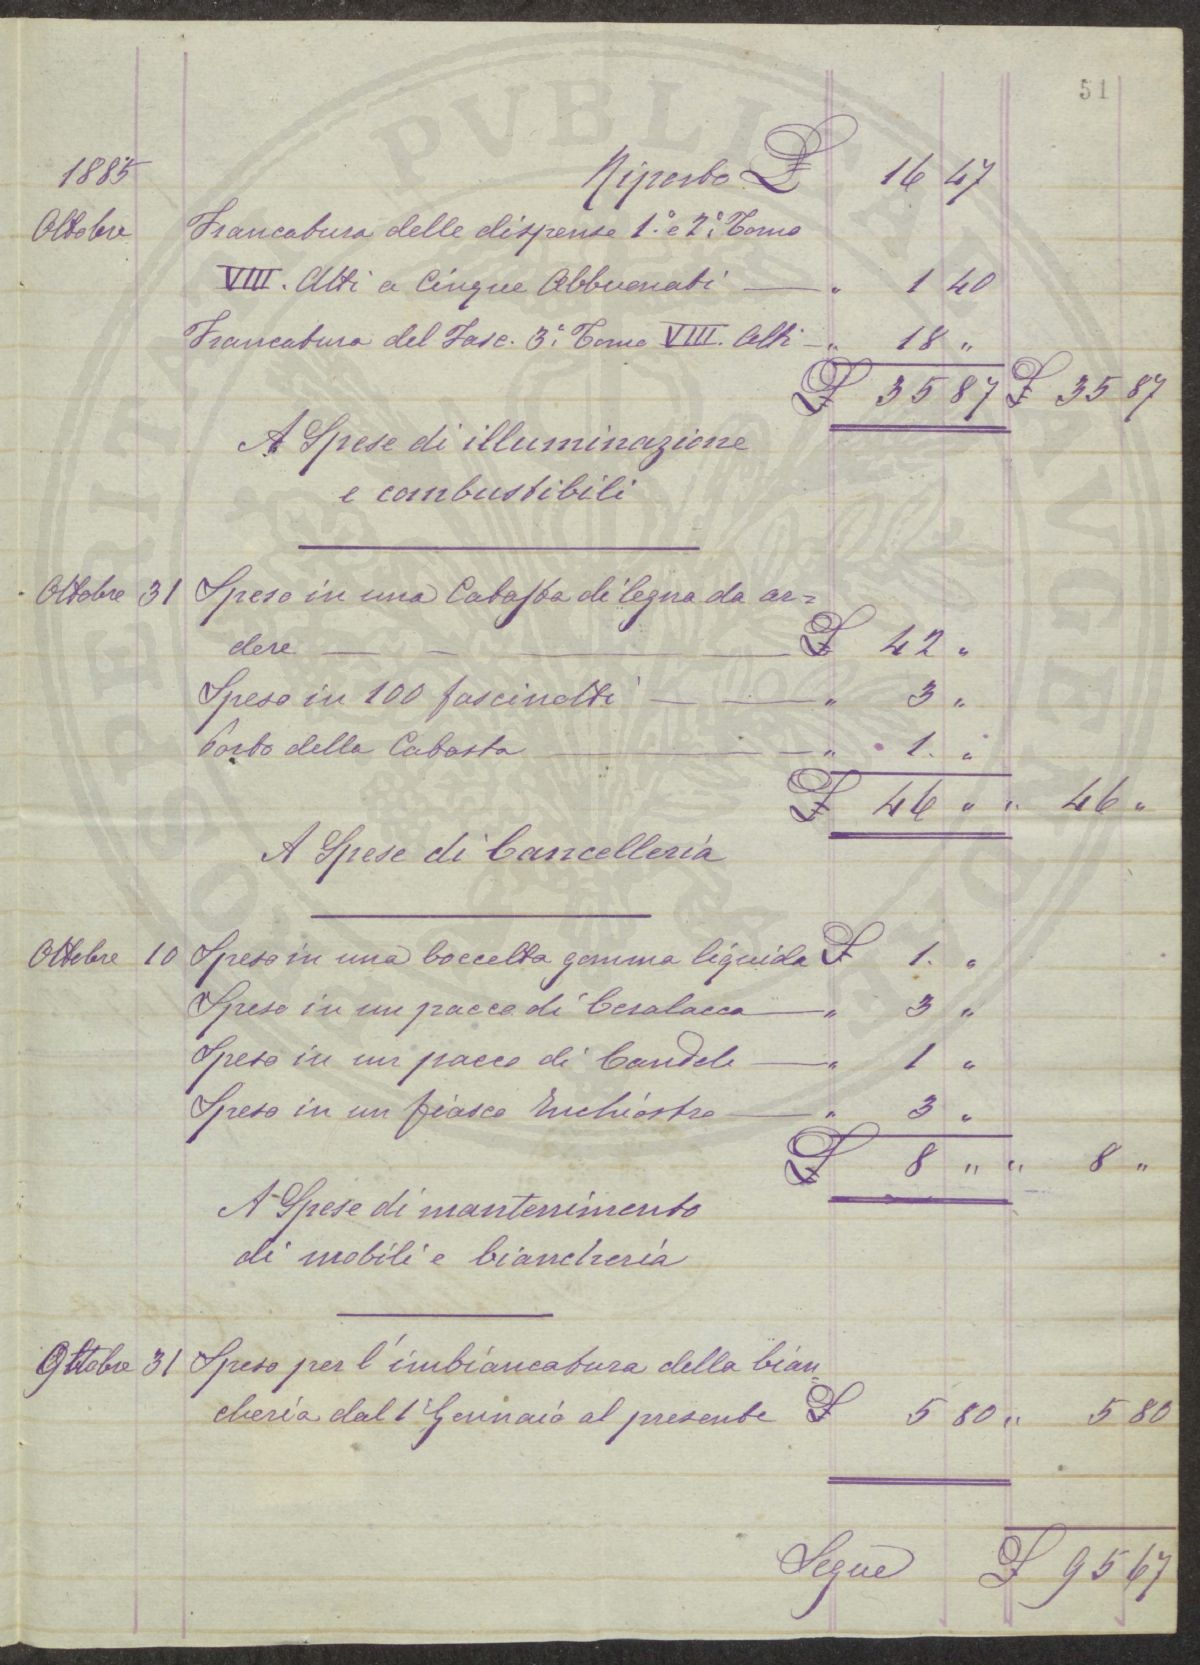 51
1885 Riporto £ 16 47
Ottobre Francatura delle dispense 1.° e 2.° Tomo
VIII. Atti a cinque Abbuonati — " 1 40
Francatura del Fasc. 3.° Tomo VIII. Atti — " 18 "
£ 35 87 £ 35 87
A Spese di illuminazione
e combustibili
Ottobre 31 Speso in una Catasta di legna da ar=
dere — £ 42 "
Speso in 100 fascinotti — " 3 "
Porto della Catasta — " 1. "
£ 46 " " 46 "
A Spese di Cancelleria
Ottobre 10 Speso in una boccetta gomma liquida £ 1. "
Speso in un pacco di Ceralacca — " 3 "
Speso in un pacco di Candele — " 1 "
Speso in un fiasco Inchiostro — " 3 "
£ 8 " " 8 "
A Spese di mantenimento
di mobili e biancheria
Ottobre 31 Speso per l'imbiancatura della bian=
cheria dal 1° Gennaio al presente £ 5 80 " 5 80
Segue £ 95 67